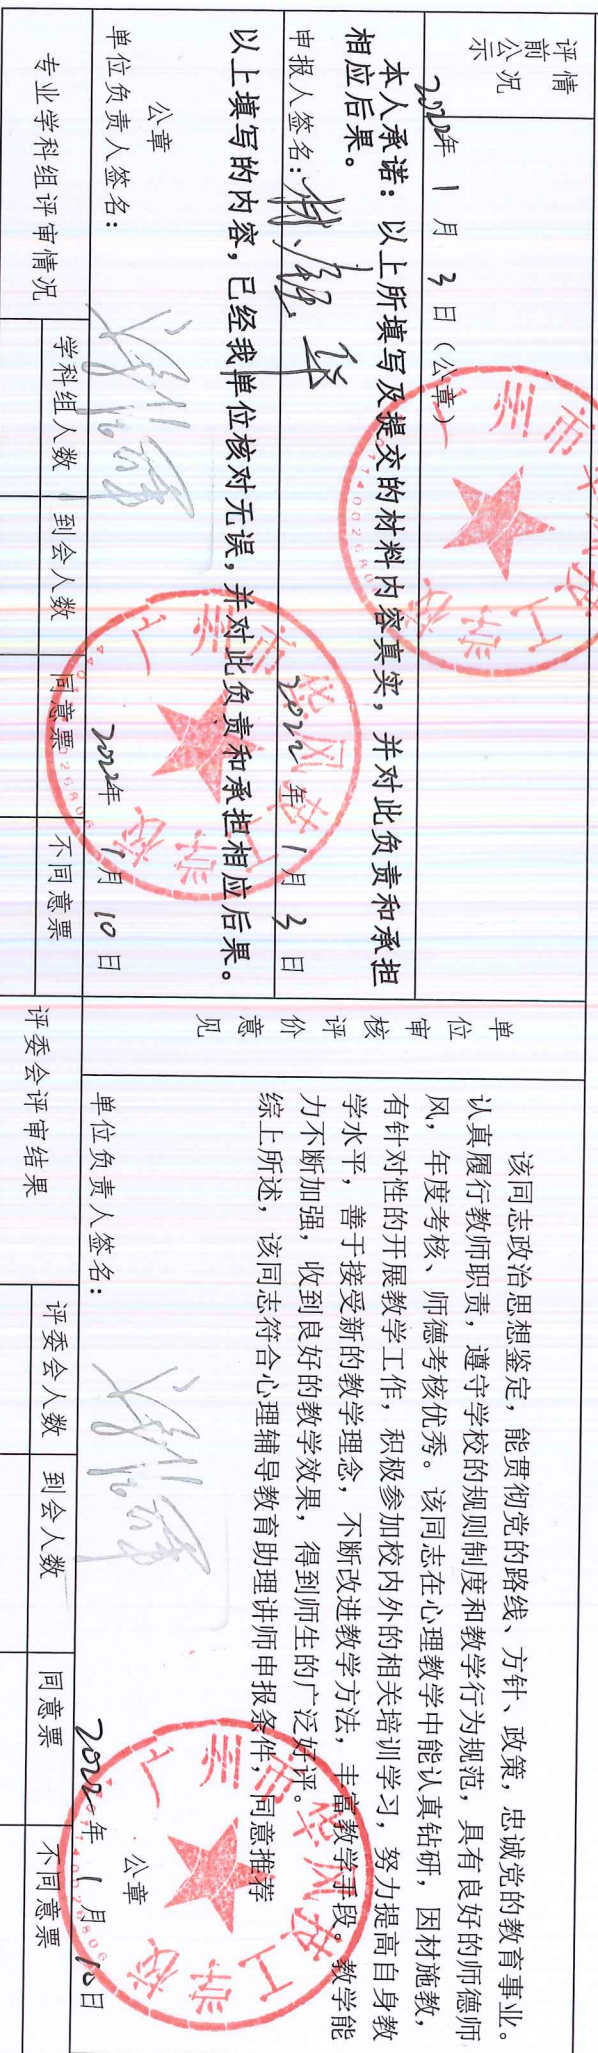 评前公示情况
2022年1月3日（公章）
本人承诺：以上所填写及提交的材料内容真实，并对此负责和承担
相应后果。
申报人签名：
2022年1月3日
以上填写的内容，已经我单位核对无误，并对此负责和承担相应后果。
公章
单位负责人签名：
2022年1月10日
广州市华风技工学校
专业学科组评审情况
学科组人数
到会人数
同意票
不同意票
单位审核评价意见
该同志政治思想鉴定，能贯彻党的路线、方针、政策，忠诚党的教育事业。
认真履行教师职责，遵守学校的规则制度和教学行为规范，具有良好的师德师
风，年度考核、师德考核优秀。该同志在心理教学中能认真钻研，因材施教，
有针对性的开展教学工作，积极参加校内外的相关培训学习，努力提高自身教
学水平，善于接受新的教学理念，不断改进教学方法，丰富教学手段。教学能
力不断加强，收到良好的教学效果，得到师生的广泛好评。
综上所述，该同志符合心理辅导教育助理讲师申报条件，同意推荐
公章
单位负责人签名：
2022年1月10日
广州市华风技工学校
评委会评审结果
评委会人数
到会人数
同意票
不同意票